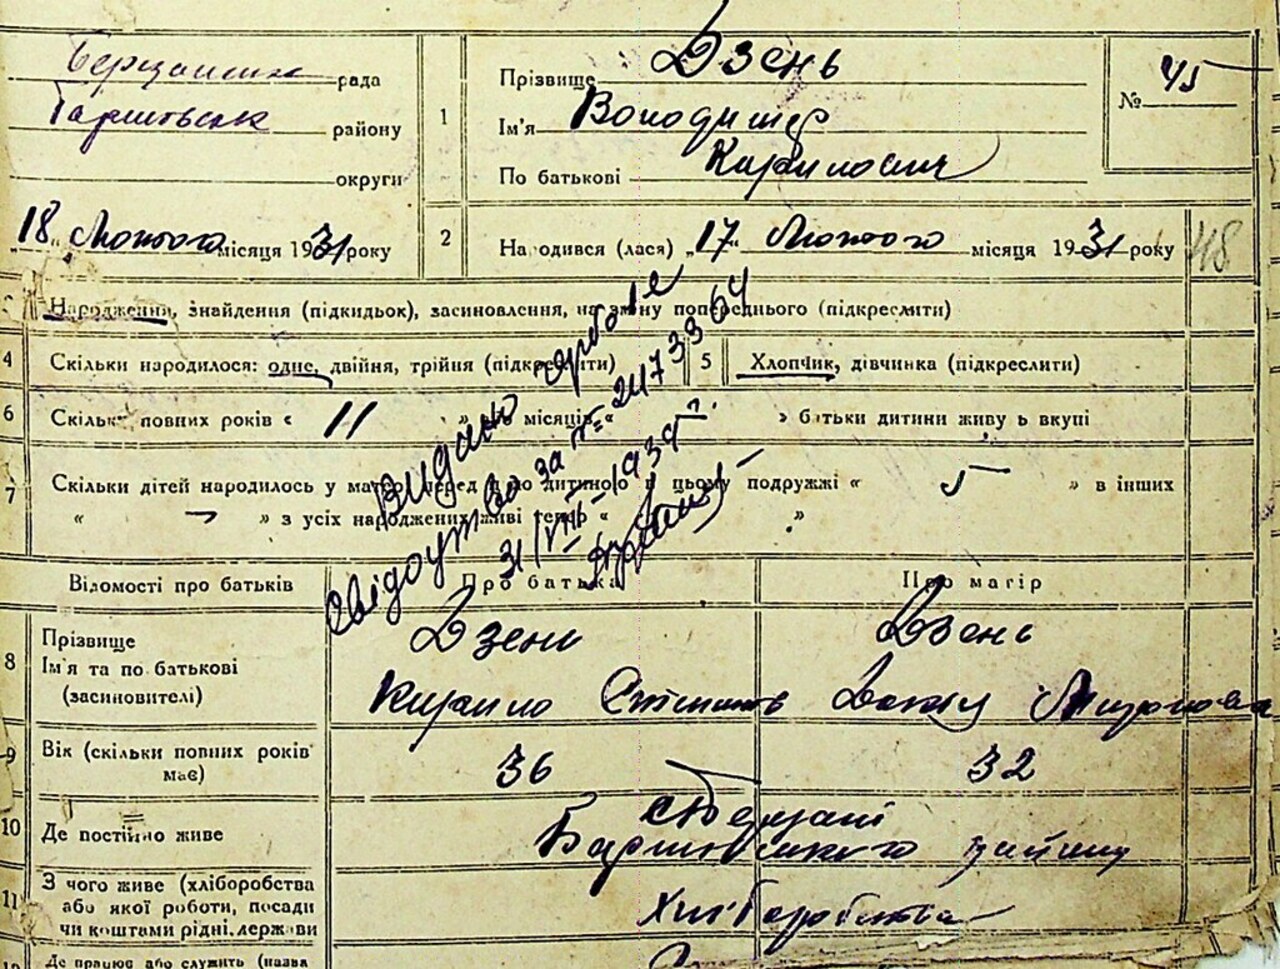 рада
району
округи
18 Лютого місяця 1931 року
1
Прізвище Дзень
Ім'я Володимир
По батькові Кирилович
№ 45
2
Народився (лася) „17" Лютого місяця 1931 року
48
Народження, знайдення (підкидьок), засиновлення, на зміну попереднього (підкреслити)
4 Скільки народилося: одне, двійня, трійня (підкреслити)
5 Хлопчик, дівчинка (підкреслити)
6 Скільк повних років « 11 » місяців « » батьки дитини живуть вкупі
7 Скільки дітей народилось у матері перед цією дитиною в цьому подружжі « 5 » в інших
« – » з усіх народжених живі тепер « »
Видано
свідоцтво за № 2473364
31/VIII–1939 р.
Відомості про батьків
Про батька
Про матір
8 Прізвище
Ім'я та по батькові
(засиновителі)
Дзень
Кирило Степанов
Дзень
Миронова
9 Вік (скільки повних років
має)
36
32
10 Де постійно живе
с Березані
району
11 З чого живе (хліборобства
або якої роботи, посади
чи коштами рідні, держави
Хліборобства
Де працює або служить (назва